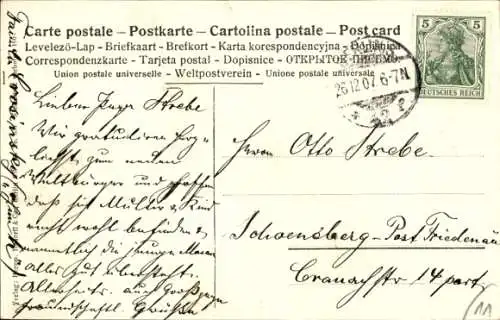 Carte postale – Postkarte – Cartolina postale – Post card
Levelező-Lap – Briefkaart – Brefkort – Karta korespondencyjna – Dopisnica
Correspondenzkarte – Tarjeta postal – Dopisnice – ОТКРЫТОЕ ПИСЬМО
Union postale universelle – Weltpostverein – Unione postale universale
5 5
DEUTSCHES REICH
26.12.07. 6-7N.
Lieber Strebe
Wir gratulieren
zum neuen
Weltbürger und hoffen
daß sie Mutter u. Kind
recht wohl befinden u
namentlich die junge Mama
Alles gut übersteht.
Allerseits auch
freundschaftl. Grüße
Herrn Otto Strebe
Schoeneberg-Post Friedenau
Cranachstr 14 part
11